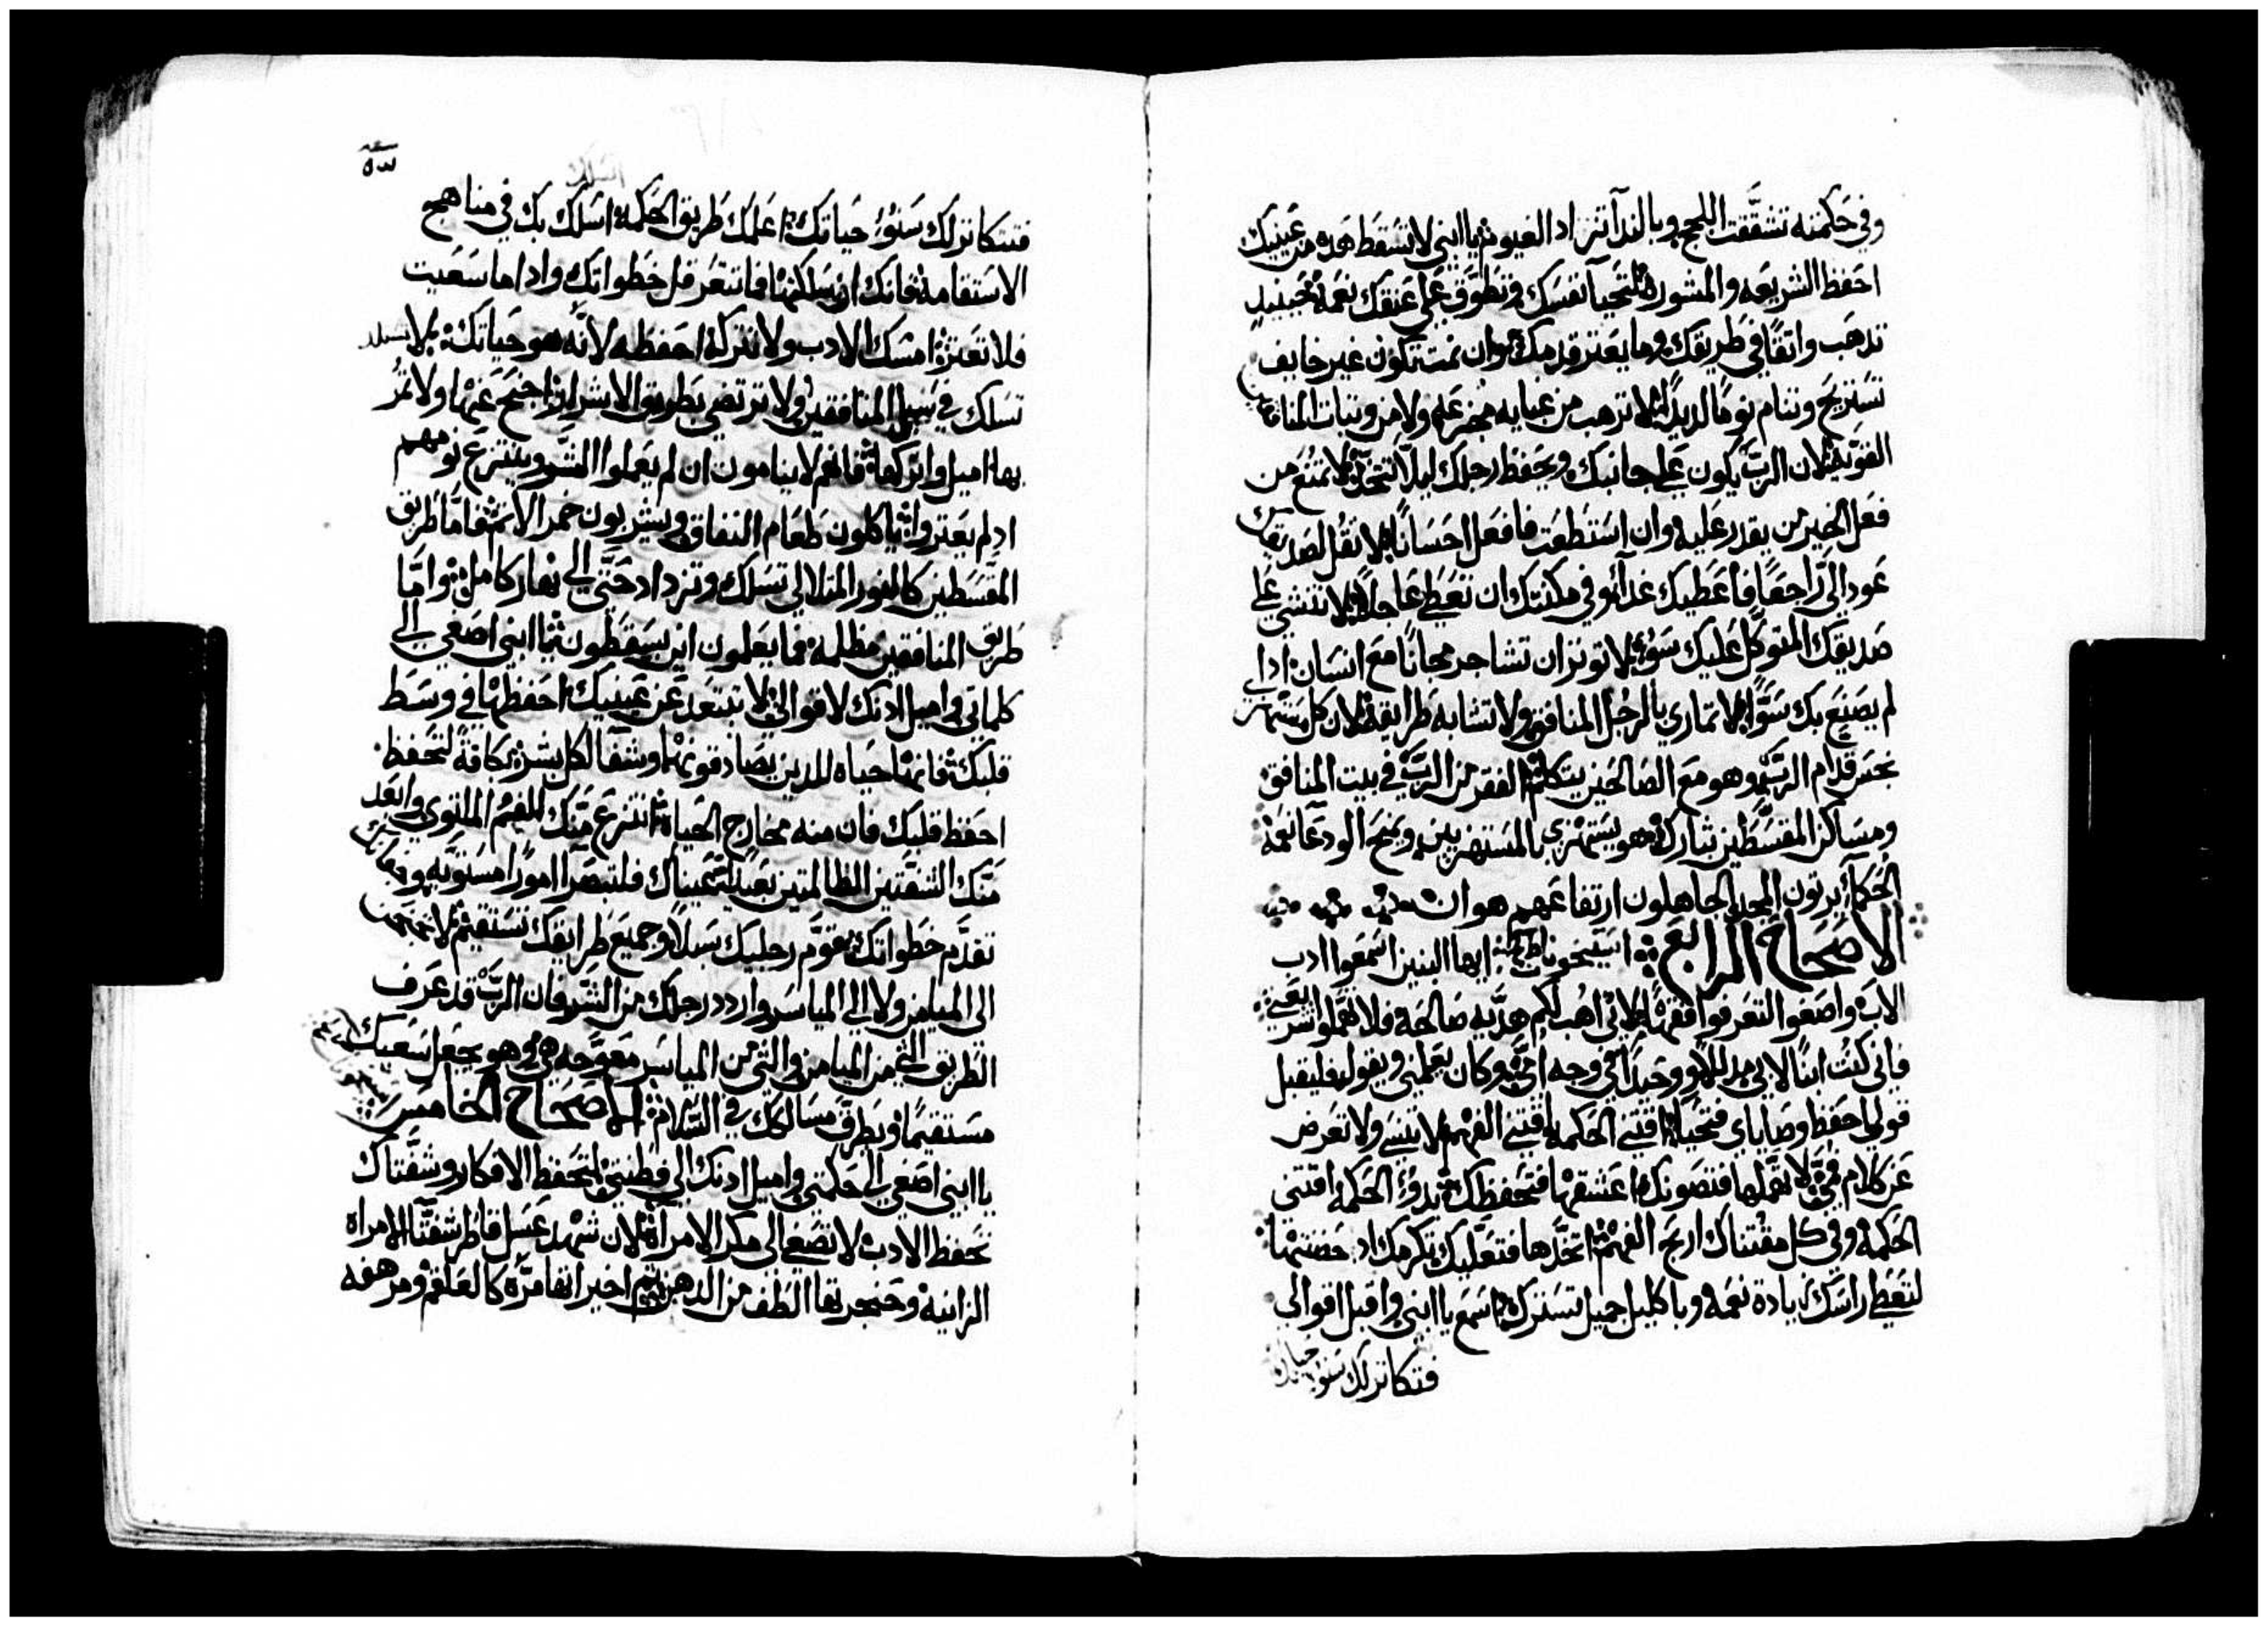 وفي حكمته تشققت اللجج وبالندا تزاد الغيوم يا ابني لا تسقط هده من عينيك
احفظ الشريعه والمشوره لتحيا نفسك وتطوق على عنقك نعمة حينيد
تدهب واثقًا في طريقك وما يعتر قدمك وان نمت تكون غير خايف
تستريح وتنام نومًا لديدًا لا ترهب من غيابه مجزعه ولا من وثبات المنافقين
القويه لان الرب يكون على جانبك ويحفظ رجلك ليلا تتخد لا تمتنع من
فعل الخير من يقدر عليه وان استطعت فافعل احسانًا لا تقل لصديقك
عود الى راجعًا فاعطيك غدا وفي مكنتك ان تعطي عاجلًا لا تنشي على
صديقك المتوكل عليك سوء لا توتر ان تشاجر مجانًا مع انسان ادا
لم يصنع بك سوًا لا تماري بالرجل المنافق ولا تشابه طرايقه لان كل مستهز
نجس قدام الرب وهو مع الصالحين يتكلم الفقر من الرب في بيت المنافق
ومساكن المقسطين تبارك هو يستهزي بالمستهزيين ويمنح الودعا نعمة
الحكما يرتون المجد الجاهلون ارتفاعهم هوان
الاصحاح الرابع اسمعوا ايها البنين اسمعوا ادب
الاب واصغوا لتعرفوا فقهًا لاني اهب لكم هديه صالحه فلا تهملوا شريعتي
فاني كنت ابنًا لابي مدللًا ووحيدًا في وجه امي وكان يعلمني ويقول فليقبل
قولي احفظ وصاياي فتحيا اقتني الحكمه اقتني الفهم لا تنسى ولا تعرض
عن كلام فمي لا تهملها فتصونك اعشقها فتحفظك بدو الحكمه اقتني
الحكمه وفي كل مقتناك اربح الفهم اتخدها فتعليك تكرمك اد حضنتها
لتعطي راسك زيادة نعمه وباكليل جميل تسترك اسمع يا ابني واقبل اقوالي
فتتكاتر لك سنو حياتك
فتتكاتر لك سنو حياتك اعلمك طريق الحكمه اسلك بك في مناهج
الاستقامه فانك ان سلكتها فما تتعرقل خطواتك وادا ما سعيت
فلا تعتر امسك الادب ولا تتركه احفظه لانه هو حياتك لا تستلد
تسلك في سبيل المنافقين ولا ترتضي بطريق الاشرار اجنح عنها ولا تمر
بها اميل واتركها فانهم لا ينامون ان لم يعملوا الشر وينتزع نومهم
اد لم يعتروا ياكلون طعام النفاق ويشربون خمر الاتم فاما طريق
المقسطين كالنور المتلالي تسلك وتزداد حتى الى نهار كامل واما
طريق المنافقين مظلمه فما يعلمون اين يسقطون يا ابني اصغي الى
كلماتي واميل ادنك لاقوالي لا تبتعد عن عينيك احفظها في وسط
قلبك فانها حياه للدين يصادقونها وشفا لكل بشر بكافة تحفظ
احفظ قلبك فان منه مخارج الحياه انتزع منك الفم الملتوي وابعد
منك الشفتين الظالمتين بعيدا عيناك فلتبصرا امورًا مستويه وجفانك
تقدم خطواتك قوم رجليك سبلًا وجميع طرايقك تستقيم لا تجنح
الى الميامن ولا الى المياسر واردد رجلك من الشر فان الرب قد عرف
الطريق التي من الميامن والتي من المياسر معوجه هي وهو يجعل سعيك
مستقيمًا ويطرق مسالكك في السلام الاصحاح الخامس
يا ابني اصغي الى حكمتي واميل ادنك الى فطنتي لتحفظ الافكار وشفتاك
تحفظ الادب لا تصغى الى مكر الامراه لان شهد عسل قاطر شفتا الامراه
الزانيه وحنجرتها الطف من الدهن تم اخيراتها مره كالعلقم ومرهفه